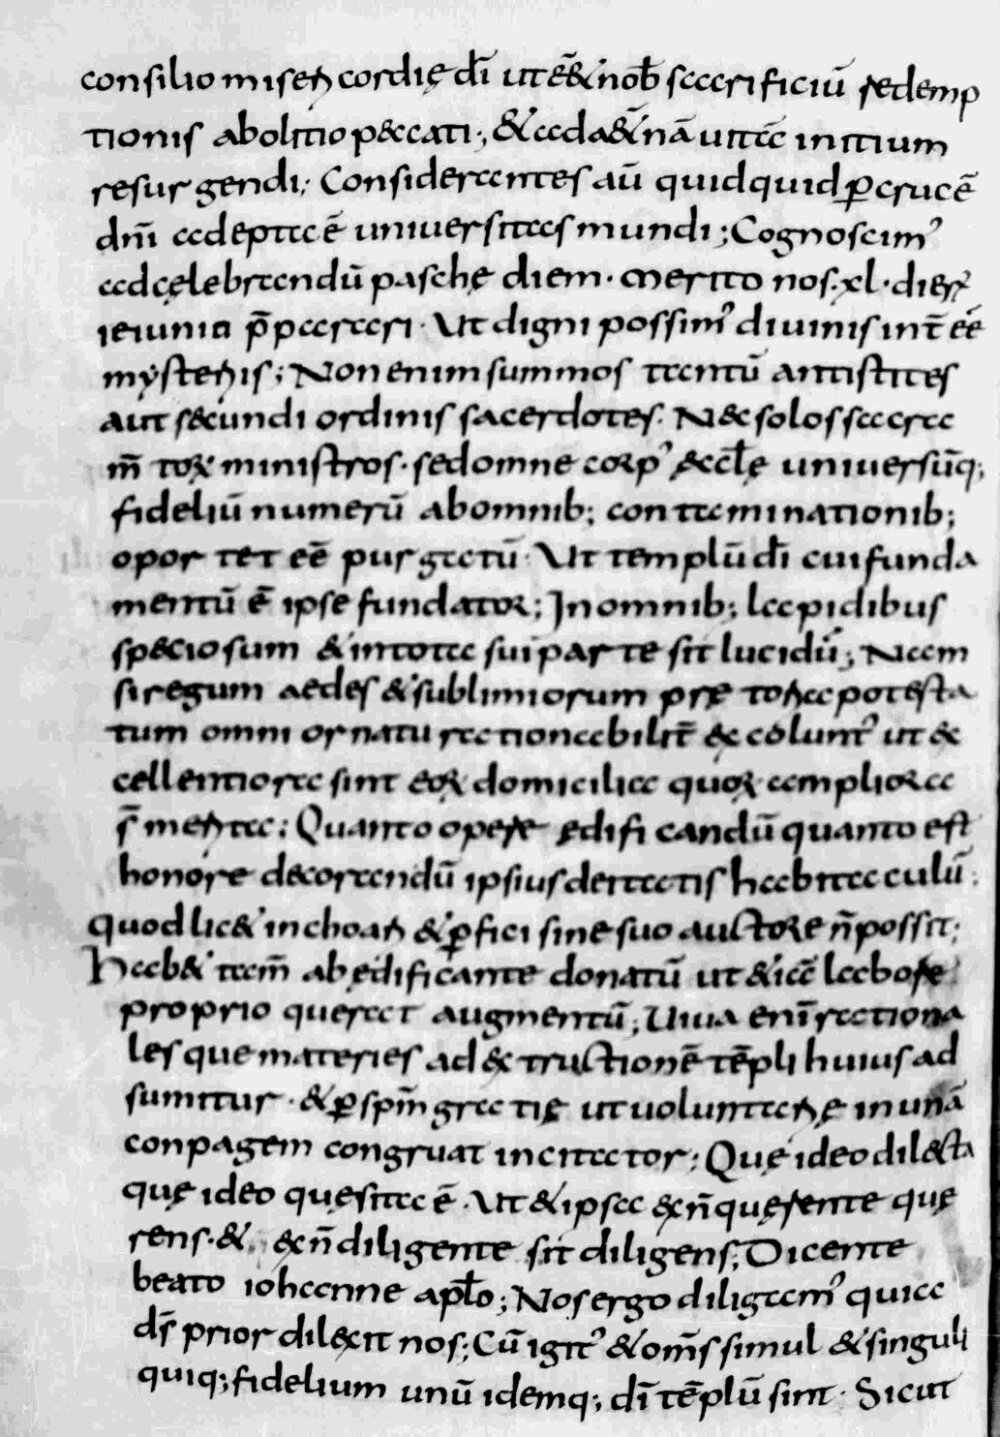 consilio miseri cordię dī ut ē& nob̄ sacrificiū redemp
tionis abolitio peccati; & ad aeternā uitā initium
resurgendi; Considerantes aū quidquid ꝑ crucē
dn̄i adepta ē uniuersitas mundi; Cognoscim'
ad cęlebrandū paschę diem · merito nos · xl · dierꝝ
ieiunia p̄parari · Ut digni possim' diuinis int̄ eē
mysteriis; Non enim summos tantū antistites
aut secundi ordinis sacerdotes. Nec solos sacra
m̄torꝝ ministros · sed omne corp' ęccl̄ę uniuersūq;
fideliū numerū ab omnib; contaminationib;
oportet eē purgatū · Ut templū dī cui funda
mentū ē ipse fundator; In omnib; lapidibus
speciosum & in tota sui parte sit lucidū; Nam
si regum aedes & sublimiorum prętoria potesta
tum omni ornatu rationabilit̄ excolunt' ut ex
cellentiora sint eorꝝ domicilia quorꝝ ampliora
s̄ merita; Quanto opere ędificandū quanto est
honore decorandū ipsius deitatis habitaculū;
Quod lic& inchoari & ꝑfici sine suo auctore n̄ possit;
Hab& tam̄ ab ędificante donatū ut &iā labore
proprio querat augmentū; Uiua enī rationa
lesque materies ad extructionē tēpli huius ad
sumitur · & ꝑ spm̄ gratię ut uoluntarię in unā
conpagem congruat incitator; Quę ideo dilecta
quę ideo quęsita ē · Ut & ipsa ex n̄ quęrente quę
rens · & ex n̄ diligente sit diligens; Dicente
beato iohanne apl̄o; Nos ergo diligam' quia
ds̄ prior dilexit nos; Cū igit' & om̄s simul & singuli
quiq; fidelium unū idemq; dī tēplū sint · Sicut